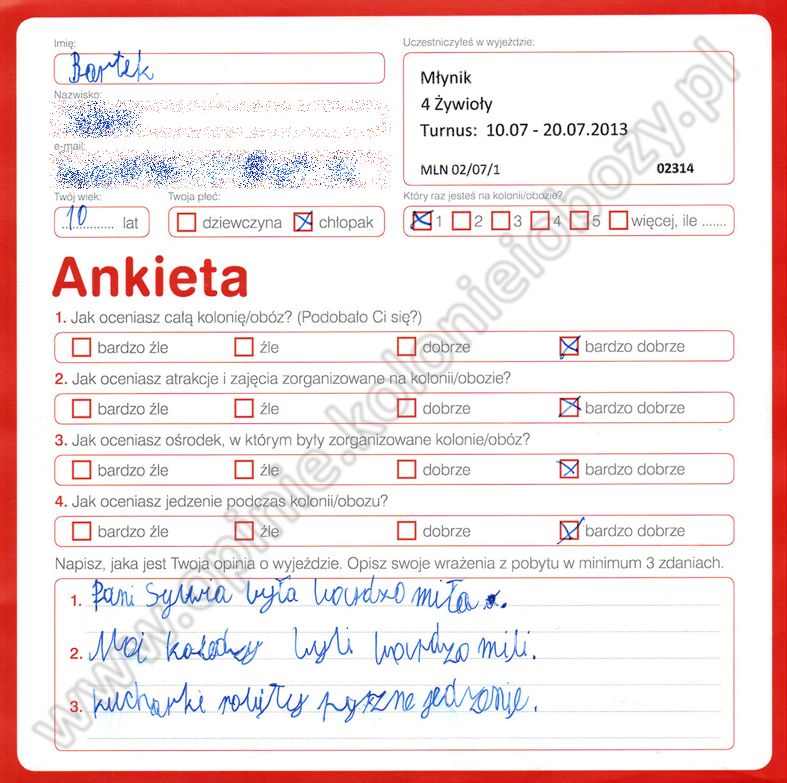 Imię:
Bartek
Uczestniczyłeś w wyjeździe:
Młynik
4 Żywioły
Turnus: 10.07 - 20.07.2013
MLN 02/07/1 02314
Nazwisko:
e-mail:
Twój wiek:
10 lat
Twoja płeć:
dziewczyna chłopak
Który raz jesteś na kolonii/obozie?
1 2 3 4 5 więcej, ile .......
Ankieta
1. Jak oceniasz całą kolonię/obóz? (Podobało Ci się?)
bardzo źle źle dobrze bardzo dobrze
2. Jak oceniasz atrakcje i zajęcia zorganizowane na kolonii/obozie?
bardzo źle źle dobrze bardzo dobrze
3. Jak oceniasz ośrodek, w którym były zorganizowane kolonie/obóz?
bardzo źle źle dobrze bardzo dobrze
4. Jak oceniasz jedzenie podczas kolonii/obozu?
bardzo źle źle dobrze bardzo dobrze
Napisz, jaka jest Twoja opinia o wyjeździe. Opisz swoje wrażenia z pobytu w minimum 3 zdaniach.
1. Pani Sylwia była bardzo miła.
2. Moi koledzy byli bardzo mili.
3. kucharki robiły pyszne jedzenie.
www.opinie.kolonieiobozy.pl